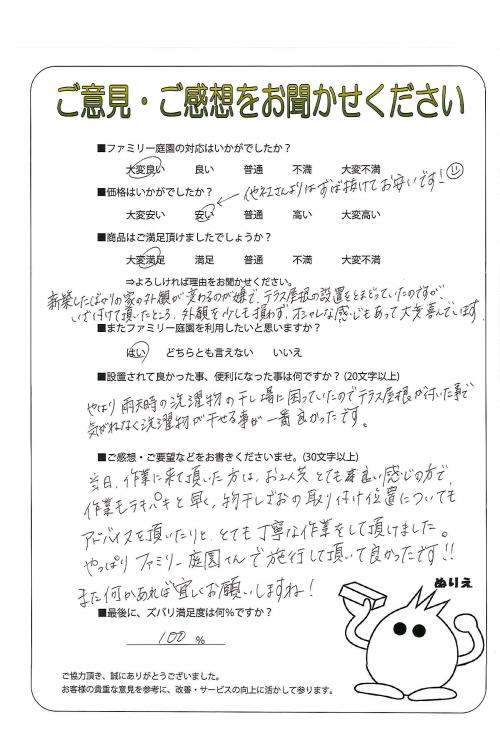 ご意見・ご感想をお聞かせください
■ファミリー庭園の対応はいかがでしたか？
大変良い 良い 普通 不満 大変不満
■価格はいかがでしたか？ ← 他社さんよりはずば抜けてお安いです！
大変安い 安い 普通 高い 大変高い
■商品はご満足頂けましたでしょうか？
大変満足 満足 普通 不満 大変不満
⇒よろしければ理由をお聞かせください。
新築したばかりの家の外観が変わるのが嫌で、テラス屋根の設置をとまどっていたのですが、
いざ付けて頂いたところ、外観を少しも損わず、オシャレな感じもあって大変喜んでいます。
■またファミリー庭園を利用したいと思いますか？
はい どちらとも言えない いいえ
■設置されて良かった事、便利になった事は何ですか？(20文字以上)
やはり雨天時の洗濯物の干し場に困っていたのでテラス屋根が付いた事で
気がねなく洗濯物が干せる事が一番良かったです。
■ご感想・ご要望などをお書きくださいませ。(30文字以上)
当日、作業に来て頂いた方は、お2人共とても感じの方で、
作業もテキパキと早く、物干しざおの取り付け位置についても
アドバイスを頂いたりと、とても丁寧な作業をして頂けました。
やっぱりファミリー庭園さんで施行して頂いて良かったです!!
また何かあれば宜しくお願いしますね！
ぬりえ
■最後に、ズバリ満足度は何％ですか？
100 %
ご協力頂き、誠にありがとうございました。
お客様の貴重な意見を参考に、改善・サービスの向上に活かして参ります。